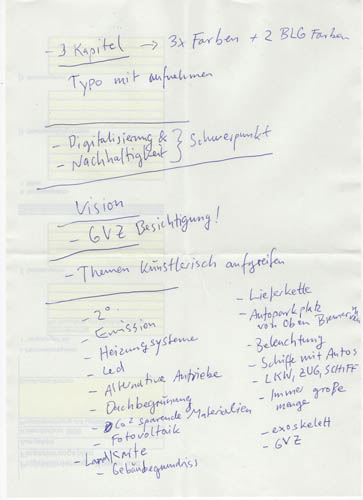 - 3 Kapitel → 3x Farben + 2 BLG Farben
Typo mit aufnehmen
- Digitalisierung &
- Nachhaltigkeit } Schwerpunkt
Vision
- GVZ Besichtigung!
- Themen künstlerisch aufgreifen
- 2°
- Emission
- Heizungsysteme
- Led
- Alternative Antriebe
- Dachbegrünung
- Co2 sparende Materialien
- Fotovoltaik
- Landkarte
- Gebäudegrundriss
- Lieferkette
- Autoparkplatz
von Oben
- Beleuchtung
- Schiffe mit Autos
- LKW, ZUG, SCHIFF
- Immer große
menge
- exoskelett
- GVZ